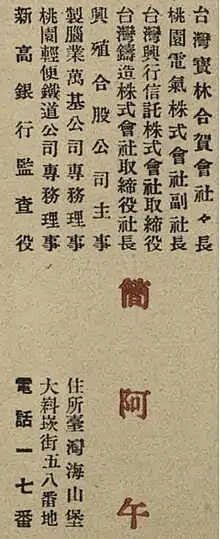 台灣寶林合賀會社々長
桃園電氣株式會社副社長
台灣興行信託株式會社取締役
台灣鑄造株式會社取締役社長
興殖合股公司主事
製腦業萬基公司專務理事
桃園輕便鐵道公司專務理事
新高銀行監査役
簡阿午
住所臺灣海山堡
大料崁街五八番地
電話一七番